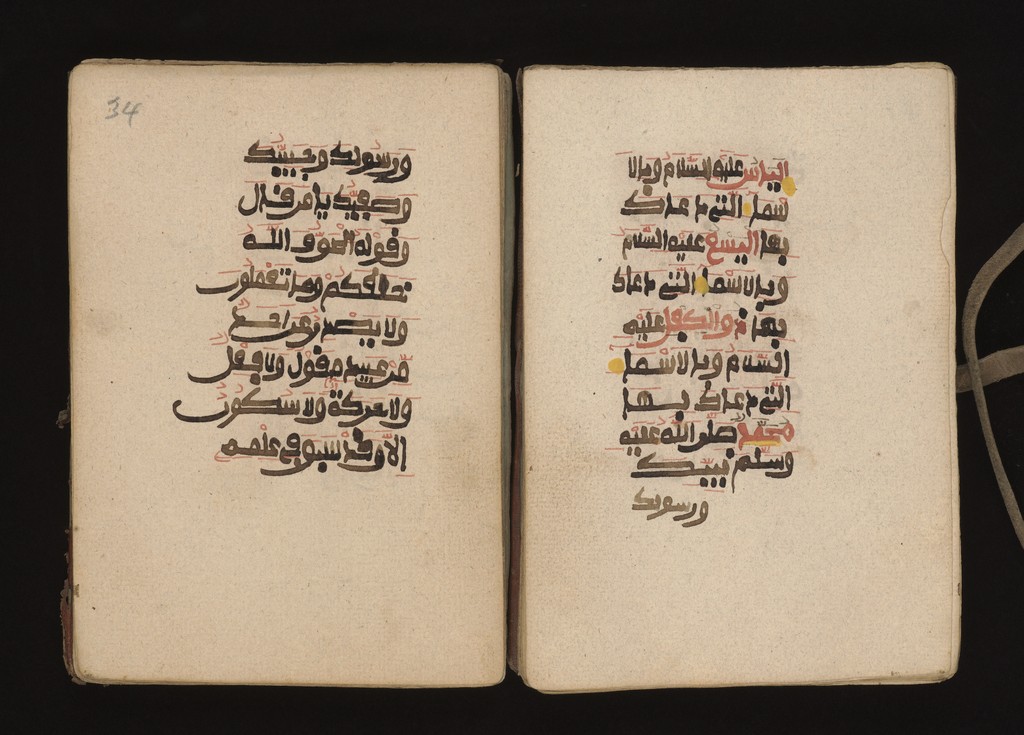 الياس عليه السلام وبالا
سماء التي دعاك
بها اليسع عليه السلام
وبالاسماء التي دعاك
بها ذو الكفل عليه
السلام وبالاسماء
التي دعاك بها
محمد صلى الله عليه
وسلم نبيك
ورسولك
34
ورسولك وحبيبك
وصفيك يا من قال
وقوله الحق والله
خلقكم وما تعملون
ولا يصدر عن احد
من عبيده قول ولا فعل
ولا حركة ولا سكون
الا وقد سبق في علمه